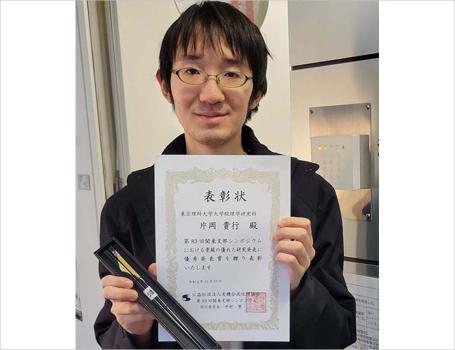 表彰状
東京理科大学大学院理学研究科
片岡 貴行 殿
第83回関東支部シンポジウム
における貴殿の優れた研究発表に
優秀発表賞を贈り表彰
いたします
公益社団法人有機合成化学協会
第83回関東支部シン